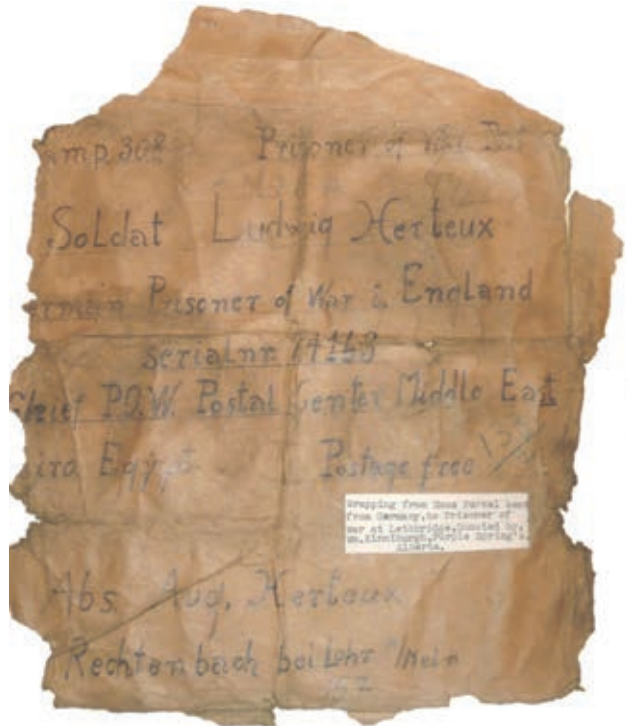 amp 308 Prisoner of War Post
Soldat Ludwig Herteux
erman Prisoner of War i. England
serialnr
Chief P.O.W. Postal Center Middle East
iro Egypt Postage free
Wrapping from Home Parcel sent
from Germany, to Prisoner of
war at Lethbridge. Donated by,
wm. Kinniburgh, Purple Spring's
Alberta.
Abs. Aug. Herteux
Rechtenbach bei Lohr a/Mein